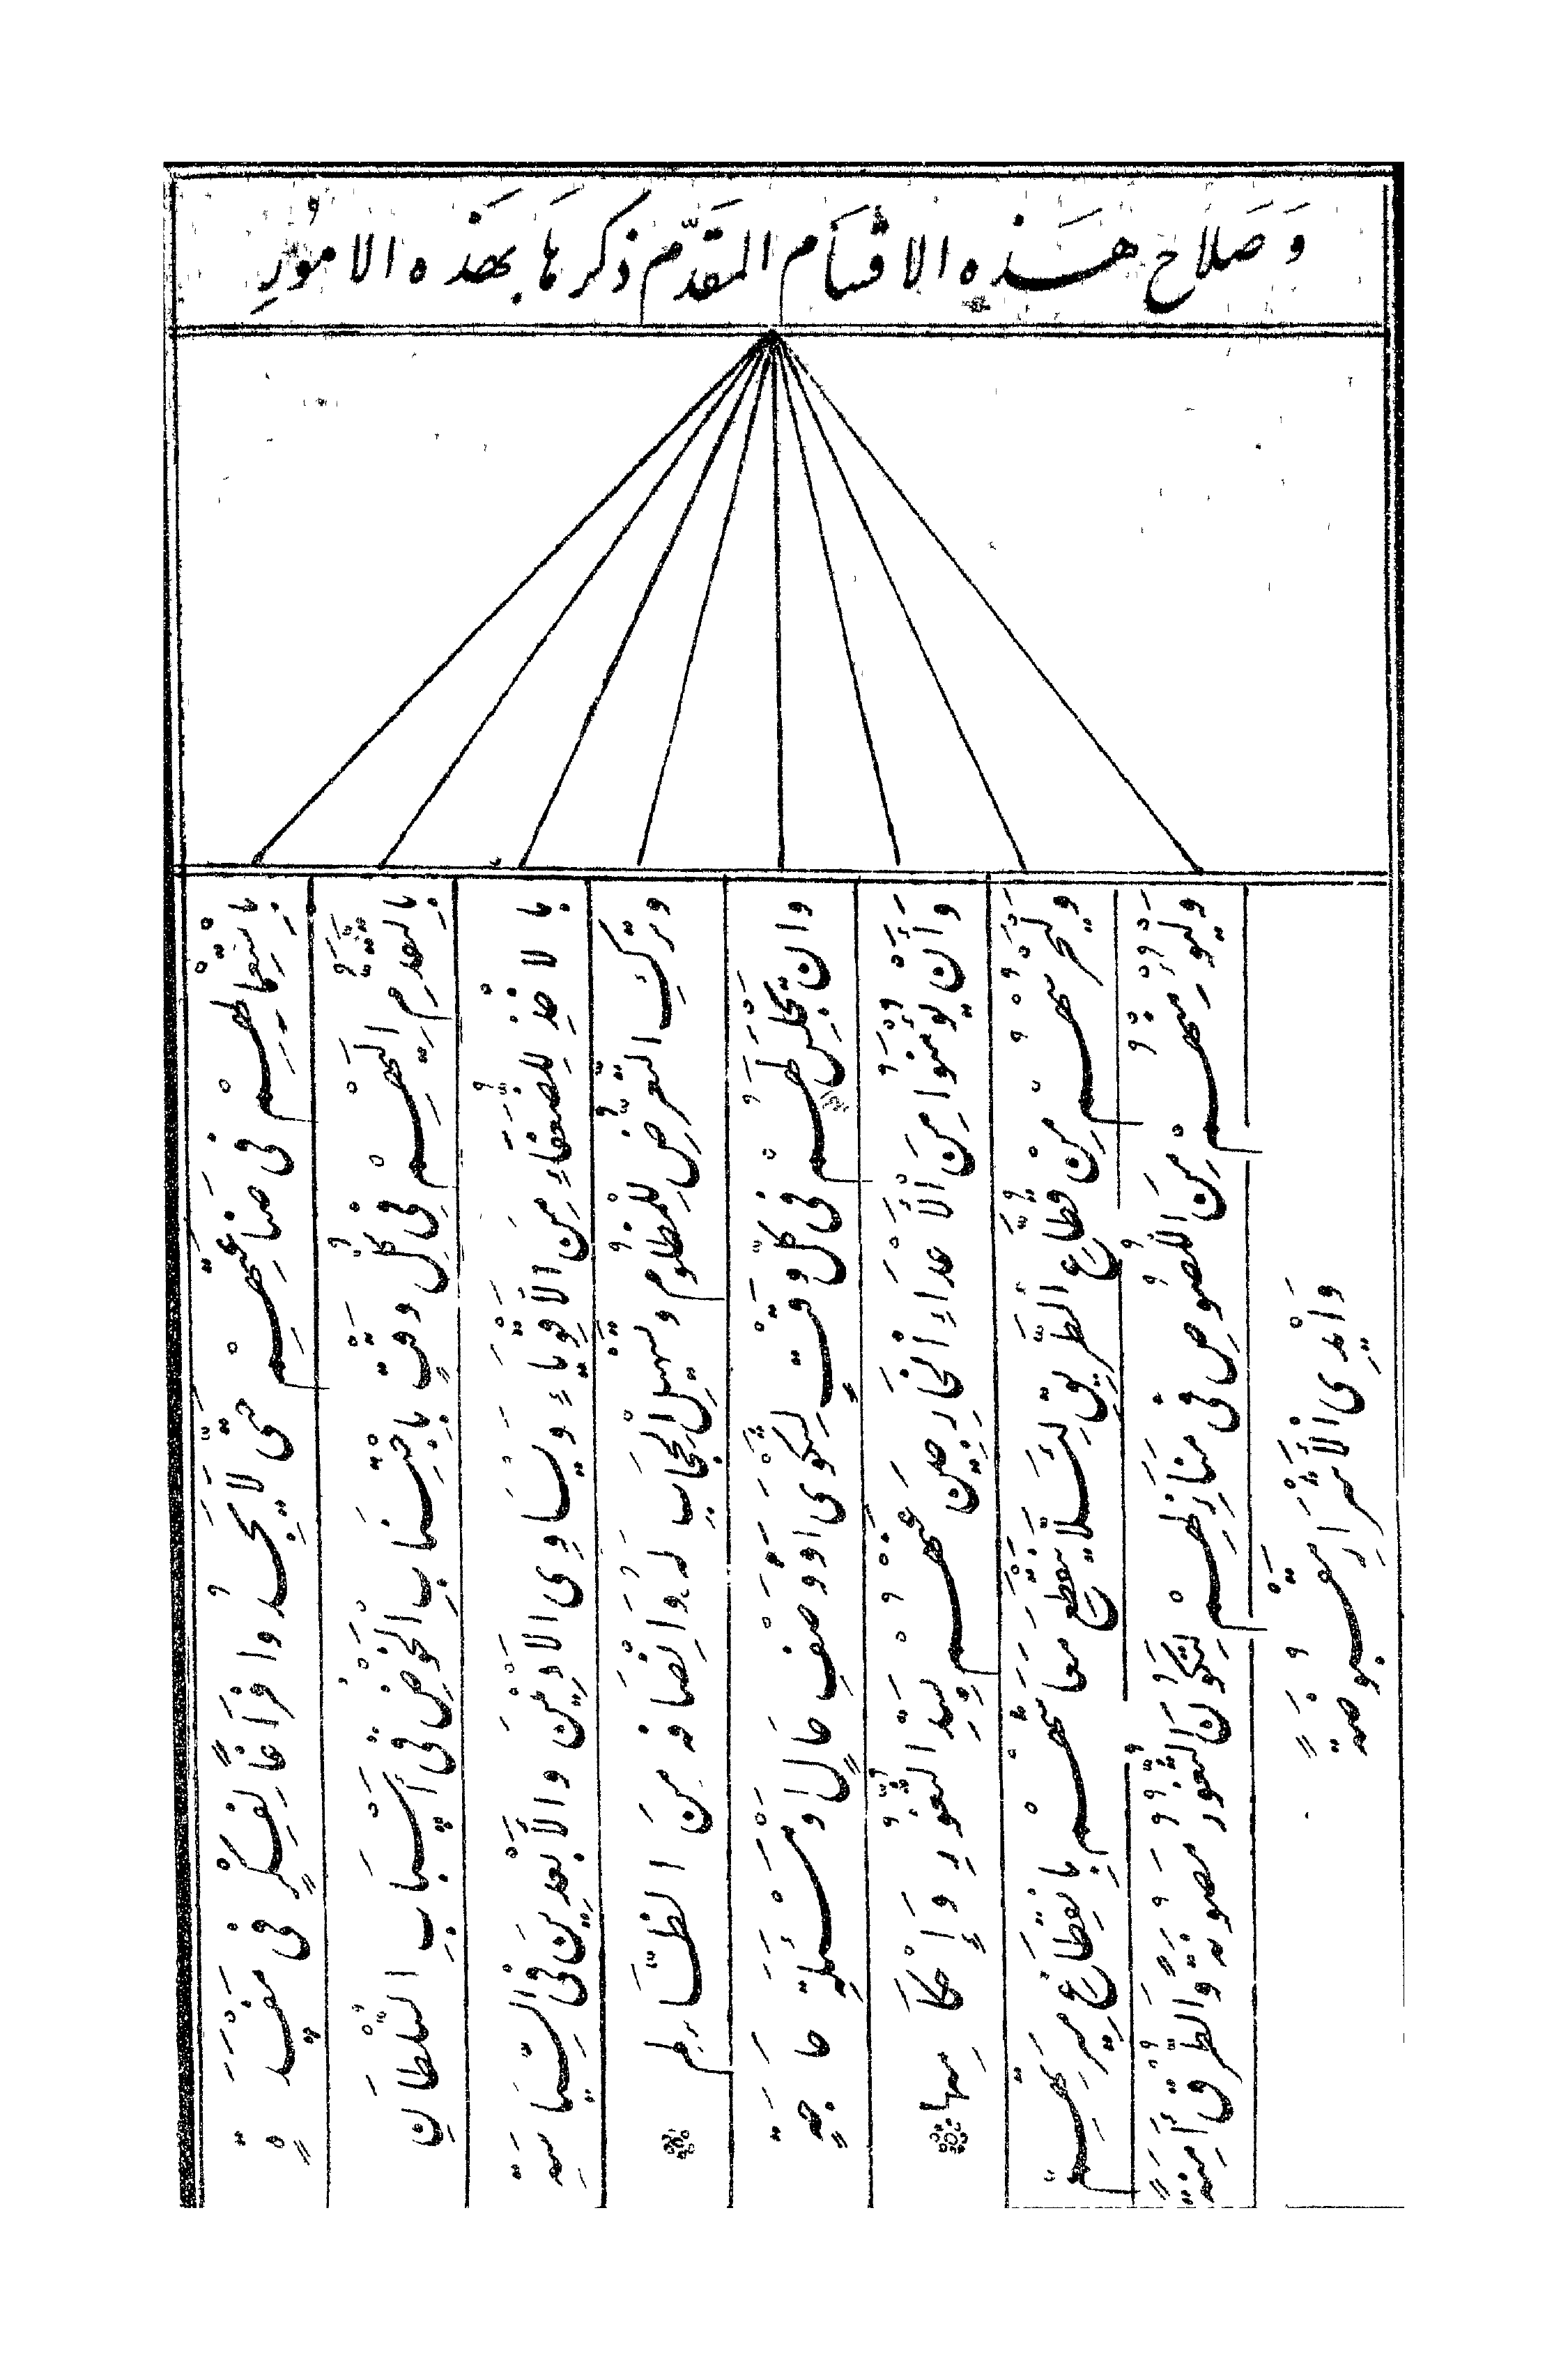 وَصَلَاح هَذِهِ الاقسَام المتقَدّم ذكرهَا بهَذه الامُورِ
بِاستِعْمَالِهِمْ فى صَناعَتِهِمْ حَتّى لَا يَجِدُوا فَرَاغًا لِفِكْرٍ فى مَفْسَدَةٍ
بِالتقَدُّمِ اِلَيهِمْ فِى كُلِّ وَقْتٍ بِاجْتِنَابِ الْخَوْضِ فى أَسْبَابِ السُّلْطَانِ
بالاخْذِ لِلضُّعَفَاءِ مِنَ الأَقْوِيَاءِ وَيُسَاوِى الاَدْنَيْنَ والأَبْعَدِينَ فى السِّيَاسَةِ
وتَركِ التَّعَرُّضِ لِلْمَظْلُومِ وتَسْهِيلِ الْحِجَابِ لَهُ وَاِنْصَافه مِنَ الظَّالِم
وان تَجْلِسَ لَهُمْ فى كُلِّ وَقْتٍ لِشَكْوَى اَوْ وَصْفِ حَالٍ اوْ مَسْئَلَةِ حَاجَةٍ
وَأَنْ يُؤْمَنُوا مِنَ الْأَعْدَاءِ الْخَارِجِينَ عَنْهُمْ بِسَدِّ الثُّغُورِ وَإِحْكَامِها
وَلْيَحْرُسْهُمْ مِنْ قُطَّاعِ الطَّرِيقِ لِئَلَّا يَنْقَطِعَ مَعَاشُهُمْ بِانْقِطَاعِ مِيرَتِهِمْ
مِنَ اللُّصُوصِ فى مَنَازِلِهِمْ لِتَكُونَ الثُّغُورُ مَصُونَةً وَالطُّرُقُ أَمِنَةً
وَاَيْدِى الْأَشْرَارِ مَقْبُوضَةً